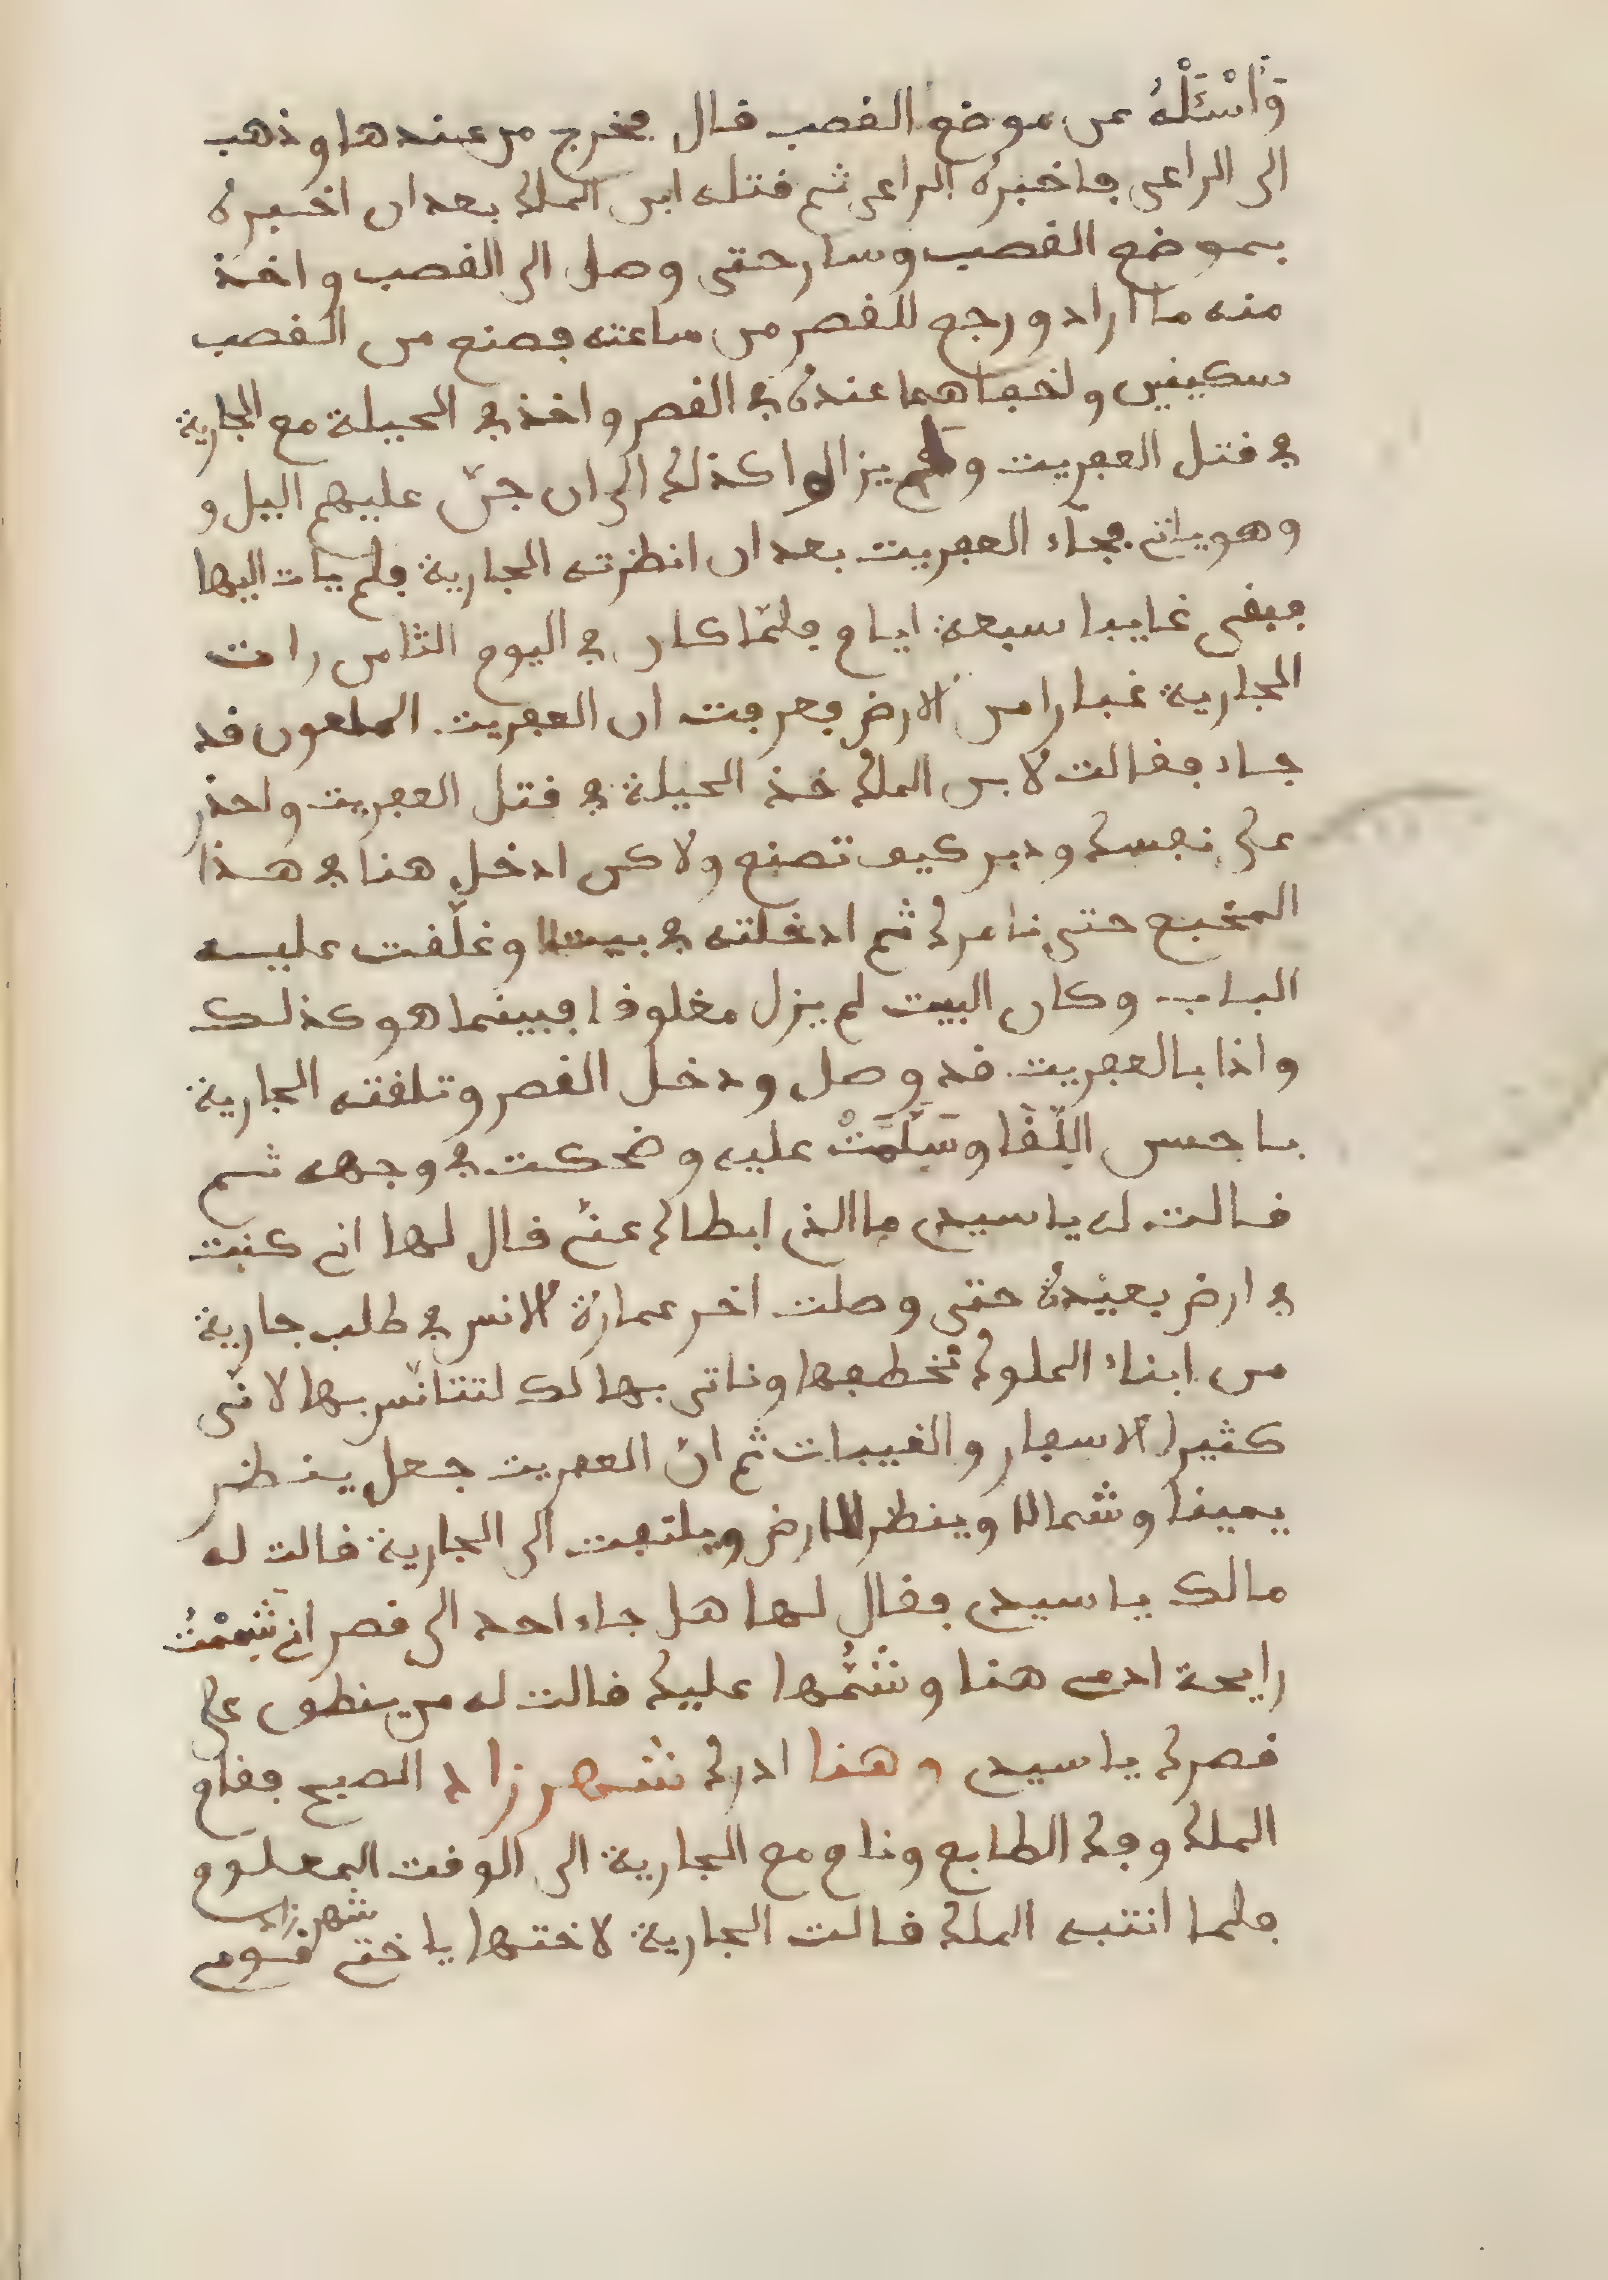 وَاسْئَلْهُ عن موضع القصب قال فخرج من عندها وذهب
الى الراعى فاخبره الراعى ثم قتله ابن الملك بعد ان اخبره
بموضع القصب وسار حتى وصل الى القصب واخذ
منه ما اراد ورجع للقصر من ساعته فصنع من القصب
سكينين واخفاهما عنده في القصر واخذ في الحيلة مع الجارية
في قتل العفريت ولم يزالوا كذلك الى ان جنّ عليهم اليل و
وهو ياتي فجآء العفريت بعد ان انظرته الجارية فلم يات اليها
فبقى غايبا سبعة ايام فلمّا كان في اليوم الثامن رات
الجارية غبارا من الارض فعرفت ان العفريت الملعون قد
جاء فقالت لابن الملك خذ الحيلة في قتل العفريت واحذر
على نفسك ودبر كيف تصنع ولاكن ادخل هنا في هذا
المخبع حتى نامرك ثم ادخلته في بيت وغلّقت عليه
الباب وكان البيت لم يزل مغلوقا فبينما هو كذلك
واذا بالعفريت قد وصل ودخل القصر وتلقته الجارية
باحسن اللّقا وسَلَّمَتْ عليه وضحكت في وجهه ثم
قالت له يا سيدى ما الذى ابطاك عنّي قال لها اني كنت
في ارض بعيدة حتى وصلت اخر عمارة الانس في طلب جارية
من ابناء الملوك نخطفها وناتى بها لك لتتانّس بها لانّى
كثير الاسفار والغيبات ثم انّ العفريت جعل ينظر
يمينا وشمالا وينظر للارض ويلتفت الى الجارية قالت له
مالك يا سيدى فقال لها هل جاء احد الى قصرى اني شَمَمْتُ
رايحة ادمى هنا وشمُّها عليك قالت له من ينطق على
قصرك يا سيدى وهنا ادرك شهرزاد الصبح فقام
الملك وفك الطابع ونام مع الجارية الى الوقت المعلوم
فلما انتبه الملك قالت الجارية لاختها يا ختي شهرزاد قومى